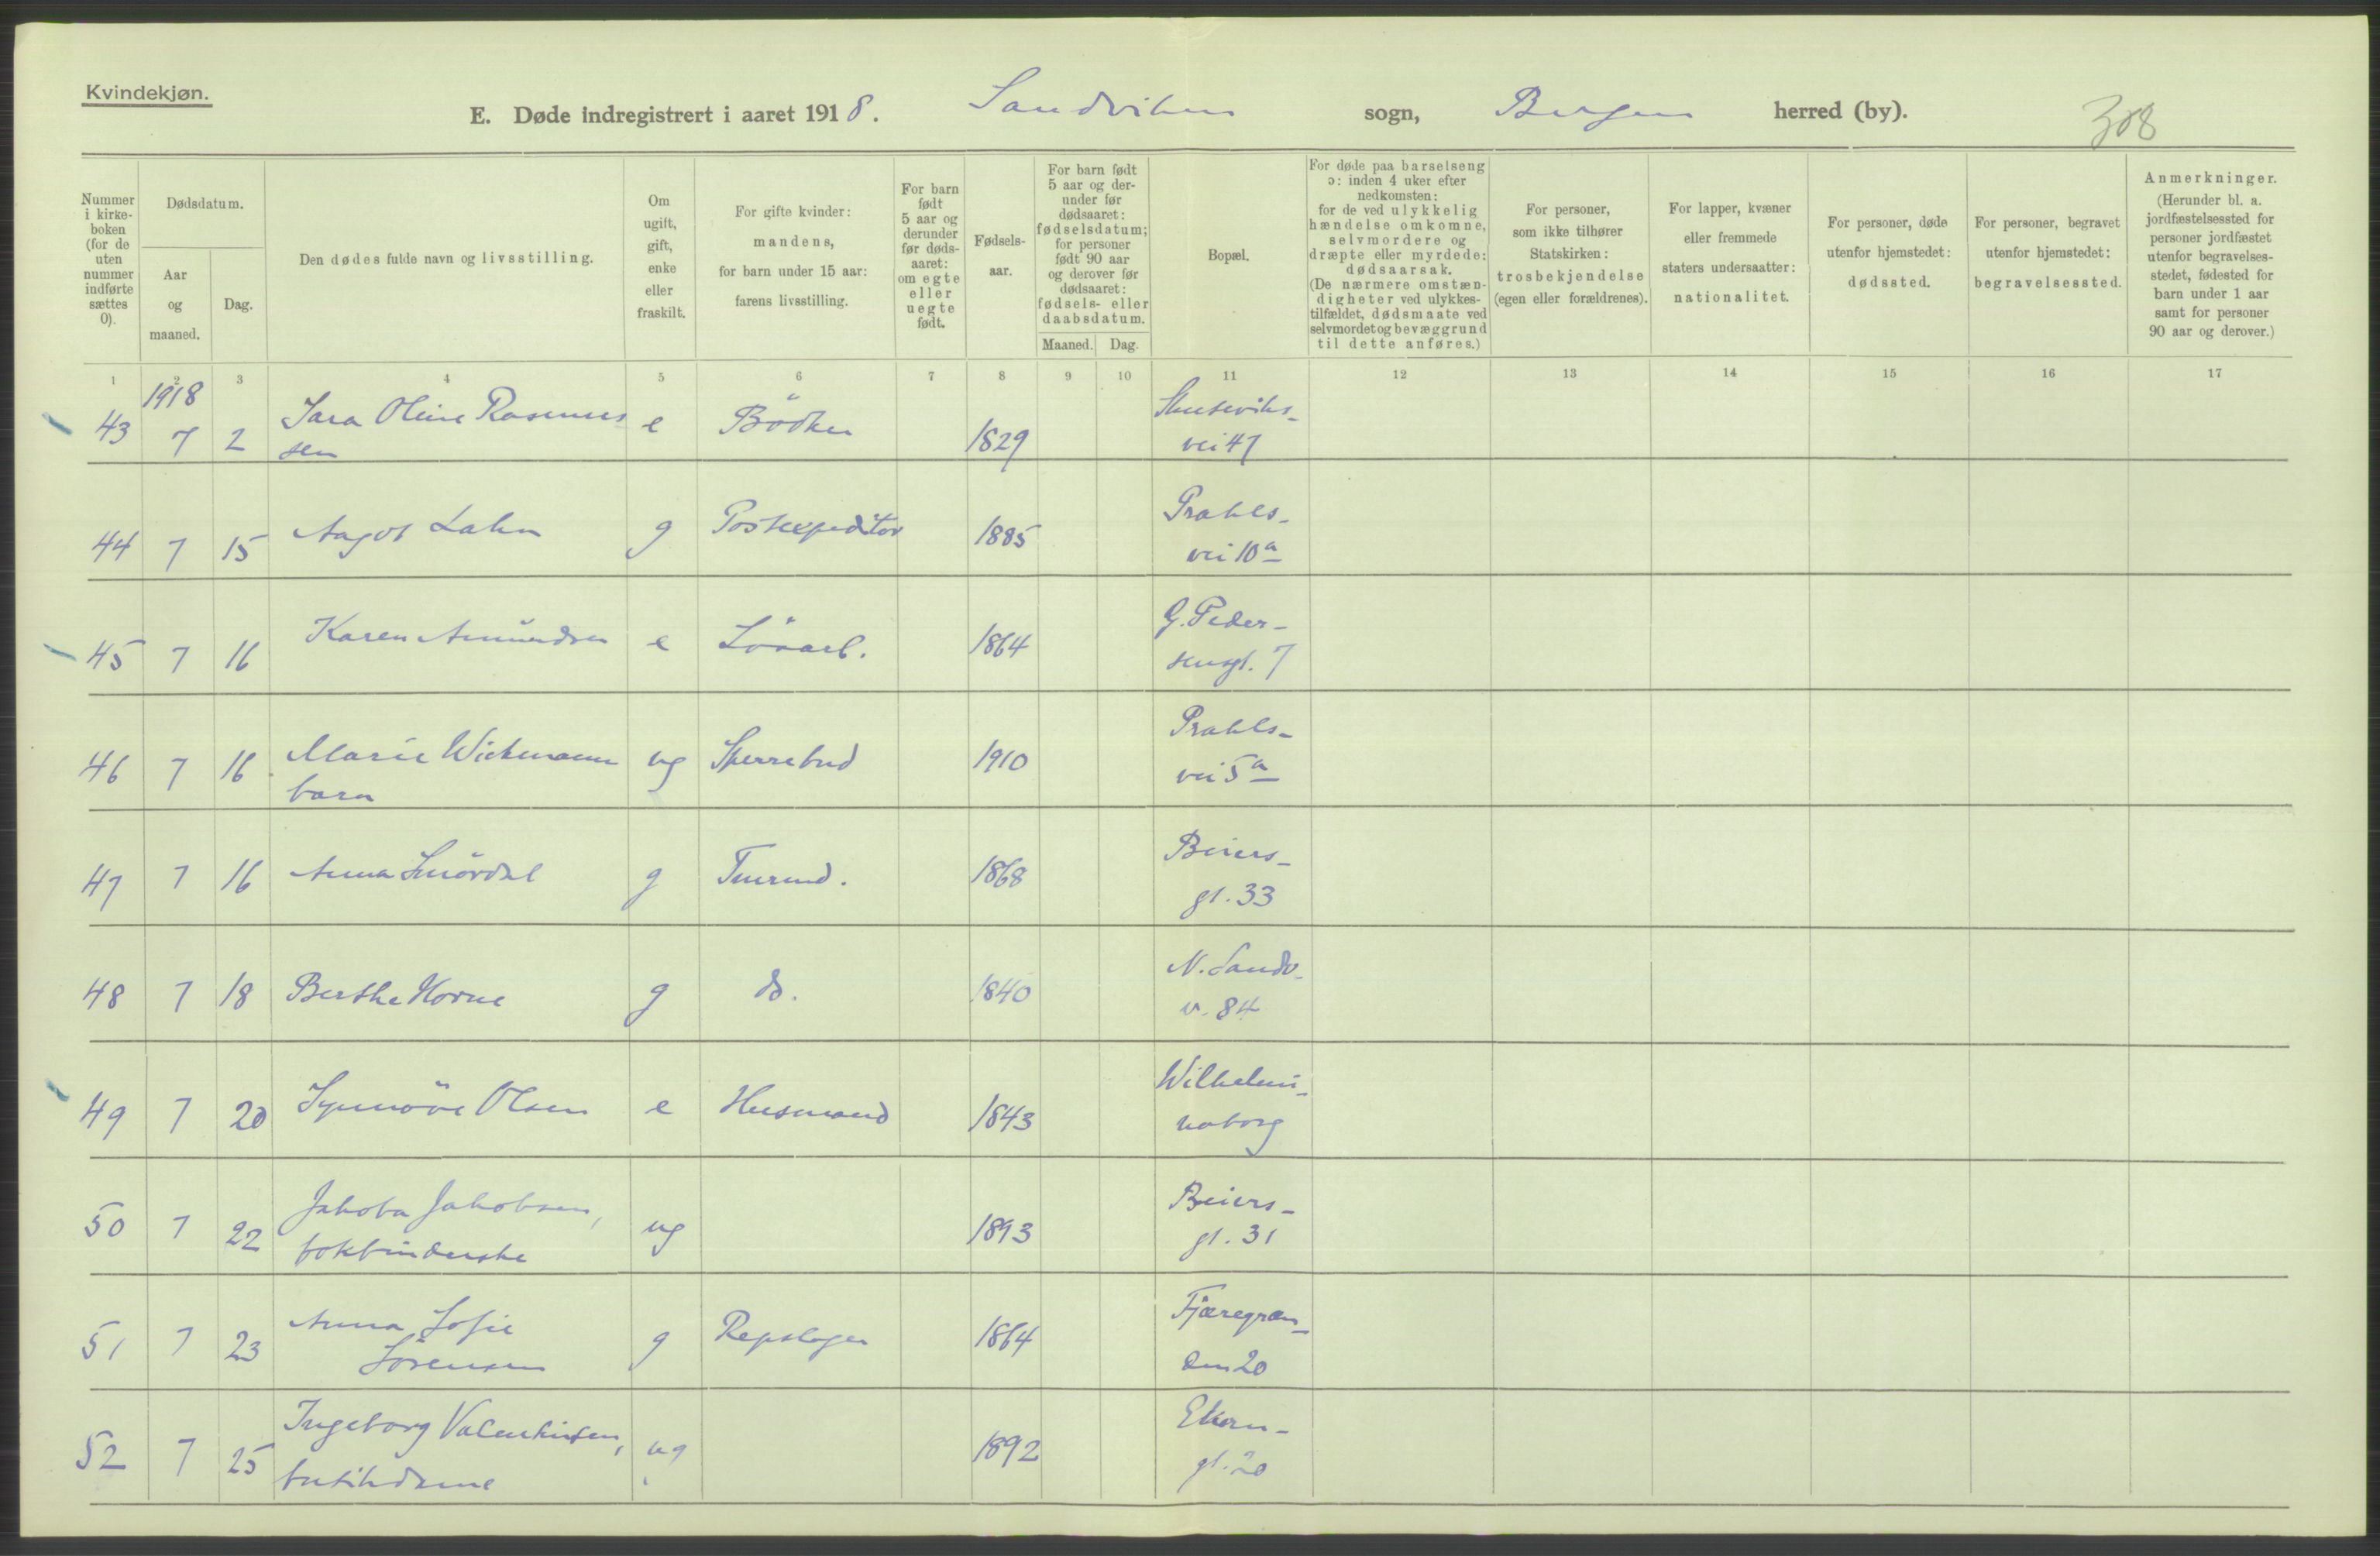 Kvindekjøn.
E. Døde indregistrert i aaret 1918. Sandviken sogn, Bergen herred (by). 308
Nummer i kirke- boken (for de uten nummer indførte sættes 0).
Dødsdatum.
Aar og maaned.
Dag.
Den dødes fulde navn og livsstilling.
Om ugift, gift, enke eller fraskilt.
For gifte kvinder: mandens, for barn under 15 aar: farens livsstilling.
For barn født 5 aar og derunder før døds- aaret: om egte eller uegte født.
Fødsels- aar.
For barn født 5 aar og der- under før dødsaaret: fødselsdatum; for personer født 90 aar og derover før dødsaaret: fødsels- eller daabsdatum.
Maaned. Dag.
Bopæl.
For døde paa barselseng ɔ: inden 4 uker efter nedkomsten: for de ved ulykkelig hændelse omkomne, selvmordere og dræpte eller myrdede: dødsaarsak. (De nærmere omstæn- digheter ved ulykkes- tilfældet, dødsmaate ved selvmordet og bevæggrund til dette anføres.)
For personer, som ikke tilhører Statskirken: trosbekjendelse (egen eller forældrenes).
For lapper, kvæner eller fremmede staters undersaatter: nationalitet.
For personer, døde utenfor hjemstedet: dødssted.
For personer, begravet utenfor hjemstedet: begravelsessted.
Anmerkninger. (Herunder bl. a. jordfæstelsessted for personer jordfæstet utenfor begravelses- stedet, fødested for barn under 1 aar samt for personer 90 aar og derover.)
1 2 3 4 5 6 7 8 9 10 11 12 13 14 15 16 17
1918
43 7 2 Sara Oline Rasmus sen e Bödker 1829 Skuteviks- vei 47
44 7 15 Aagot Lahn g Postexpeditör 1885 Prahls- vei 10 a
45 7 16 Karen Amundsen e Lösarb. 1864 G. Peder- sensgt. 7
46 7 16 Marie Wickmann barn ug Sperrebud 1910 Prahls- vei 5 a
47 7 16 Anna Smördal g Tmrmd. 1868 Beiers- gt. 33
48 7 18 Berthe Horne g do. 1840 N. Sandv- v. 84
49 7 20 Synnöve Olsen e Husmand 1843 Wilhelmi- naborg
50 7 22 Jakoba Jakobsen, bokbinderske ug 1893 Beiers- gt. 31
51 7 23 Anna Sofie Sörensen g Repslager 1864 Fjæregræn- den 20
52 7 25 Ingeborg Valentinsen, butikdame ug 1892 Ekern- gt. 20